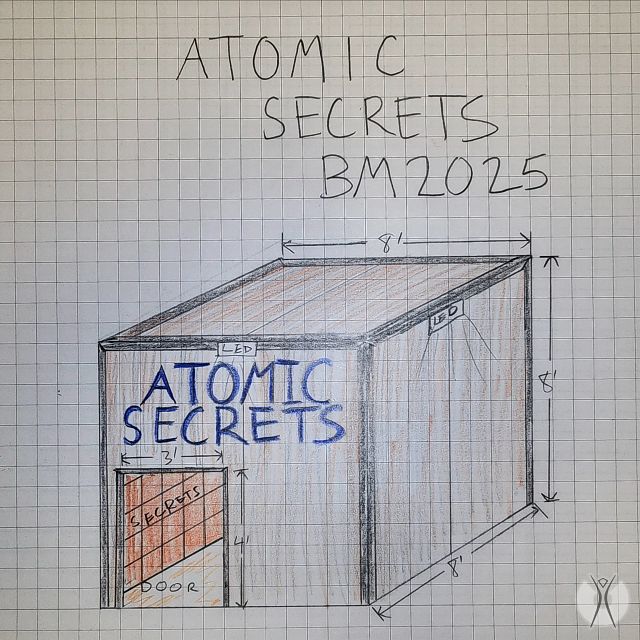 ATOMIC
SECRETS
BM2025
8'
LED
LED
8'
ATOMIC
SECRETS
3'
SECRETS
4'
DOOR
8'